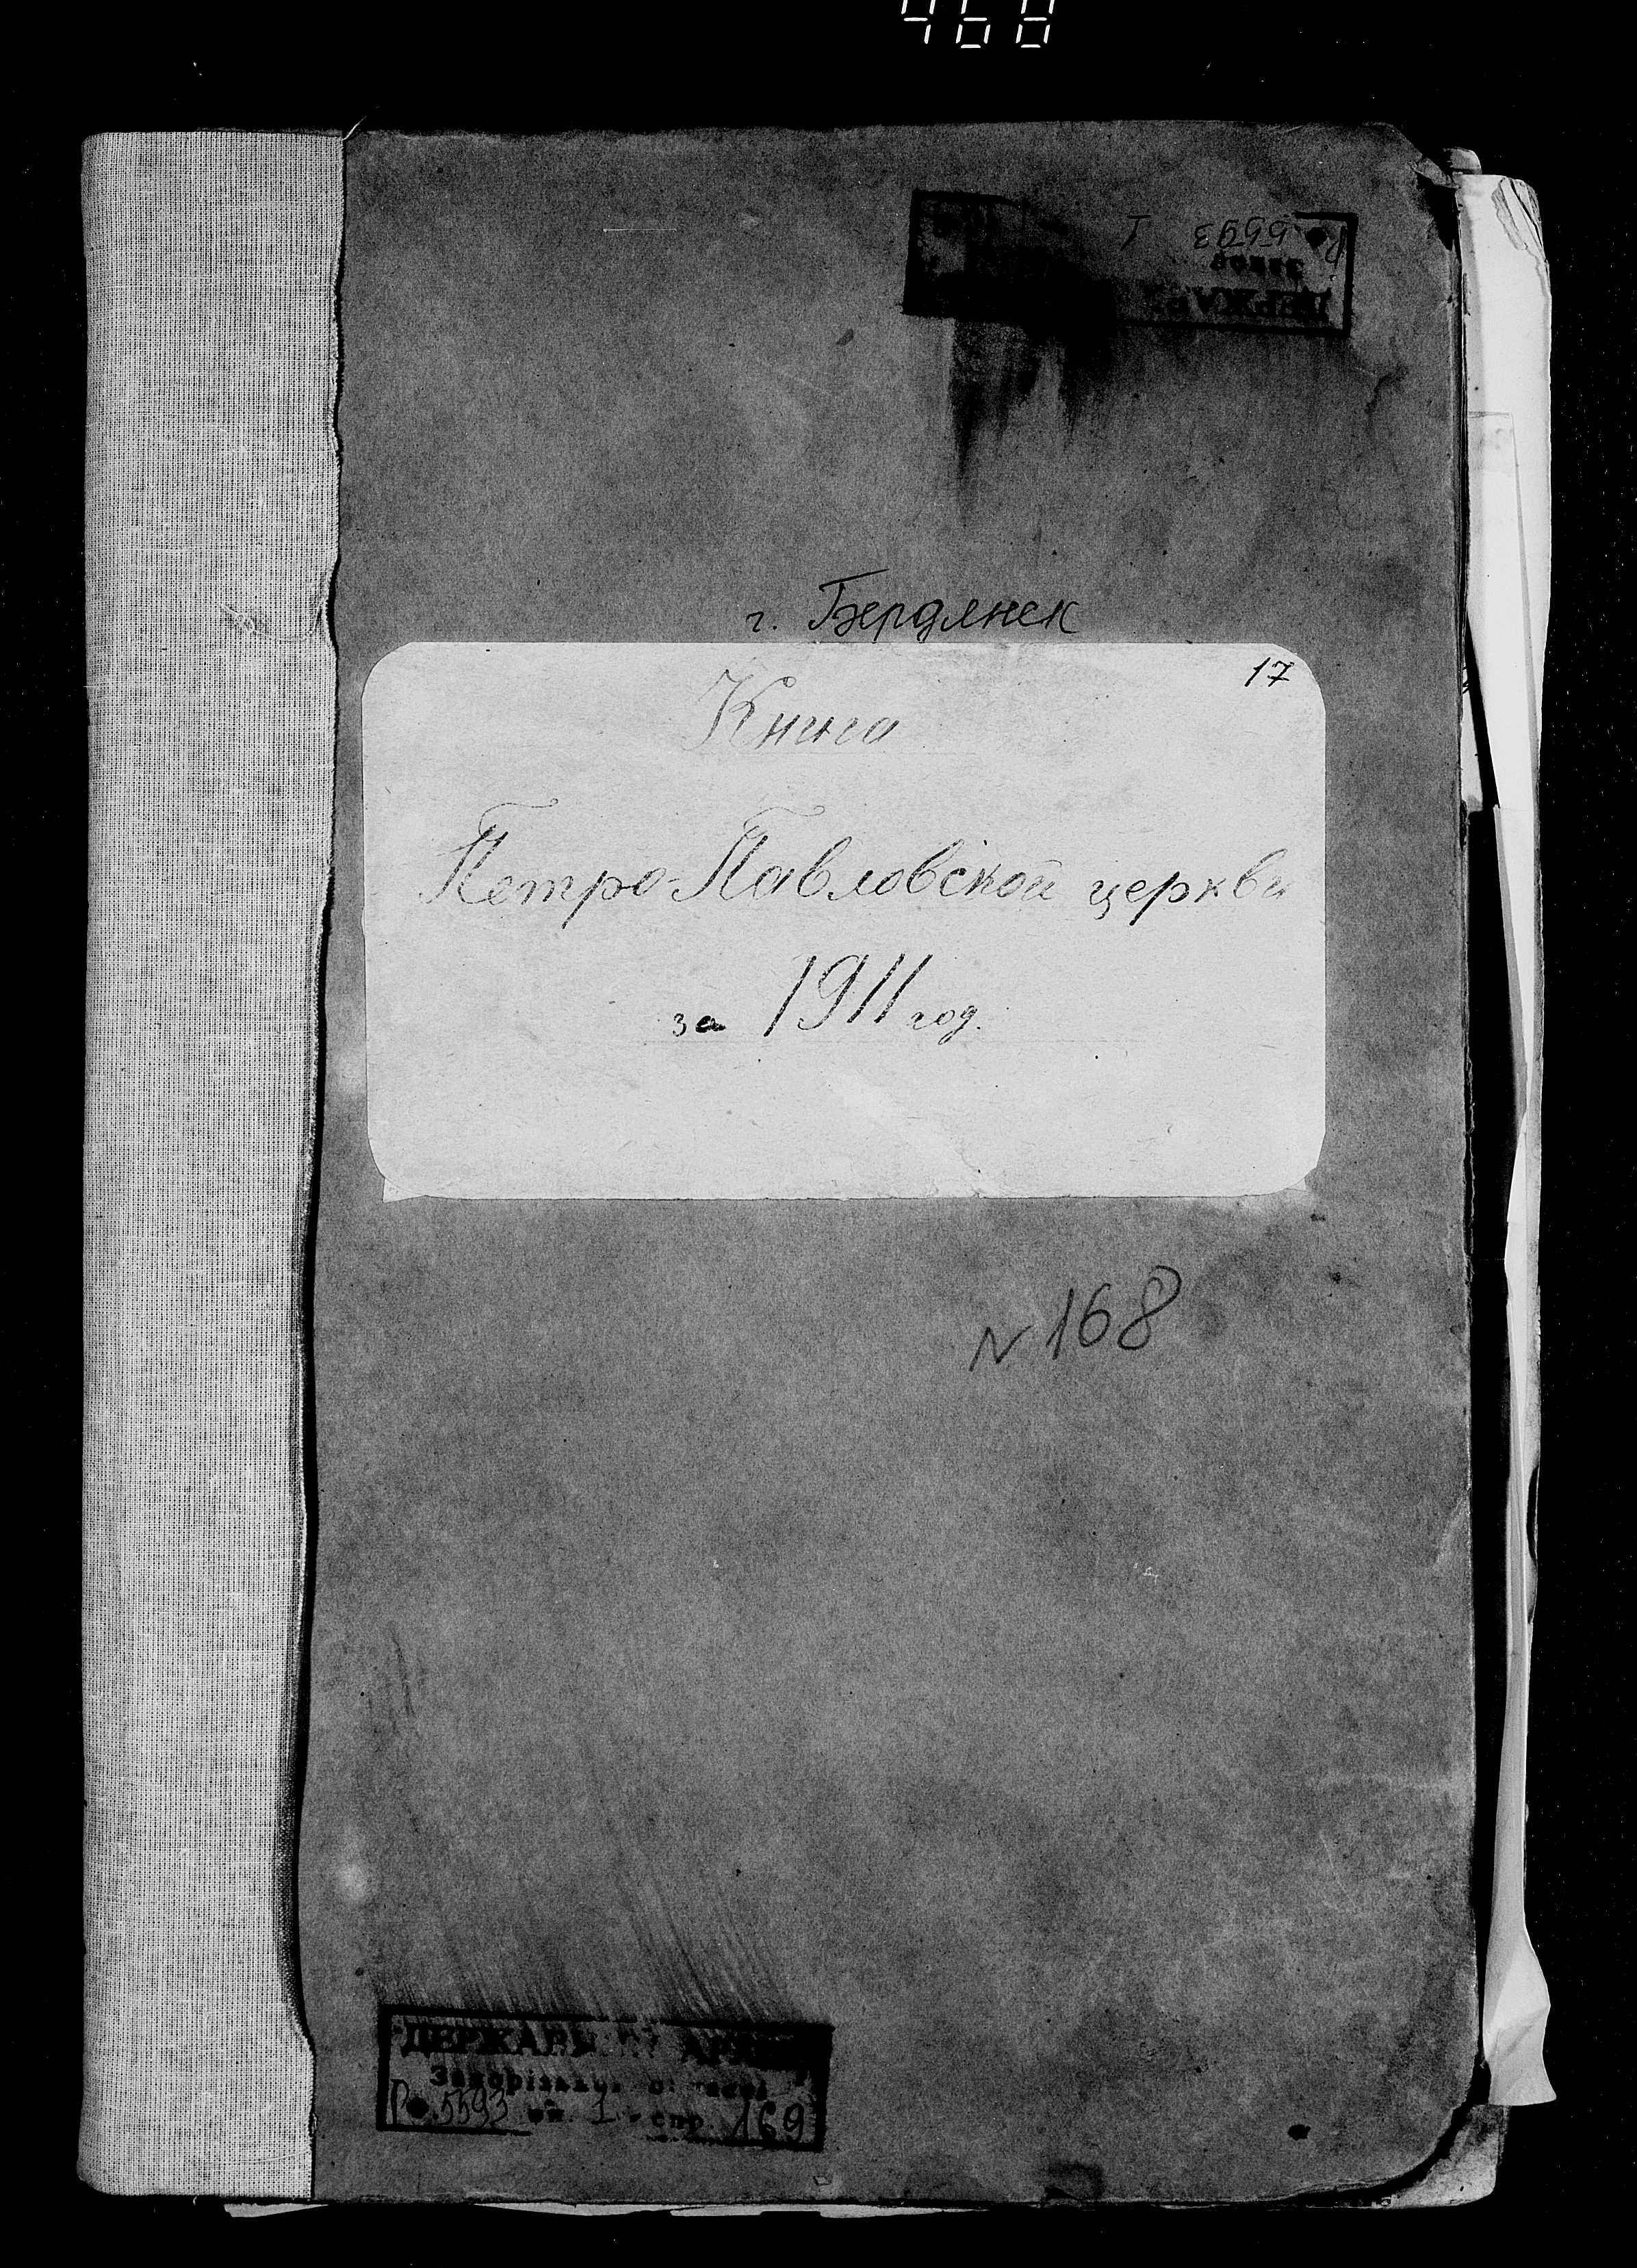 468
Р. 5593 1
г. Бердянск
17
Книга
Петро-Павловской церкви
за 1911 год.
N 168
ДЕРЖАВНИЙ АРХІВ
Запорізької області
Р. 5593 оп. 1 спр. 169